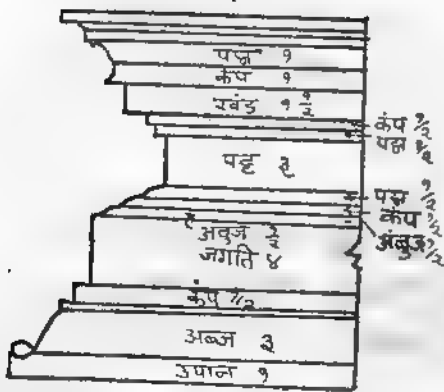 पद्म १
कंप १
खंड १ १/२
कंप १/२
पद्म १/२
पट्ट ३
पद्म १/२
कंप १/२
अंबुज १/२
अंबुज १/२
जगति ४
कंप १/२
अब्ज ३
उपान १